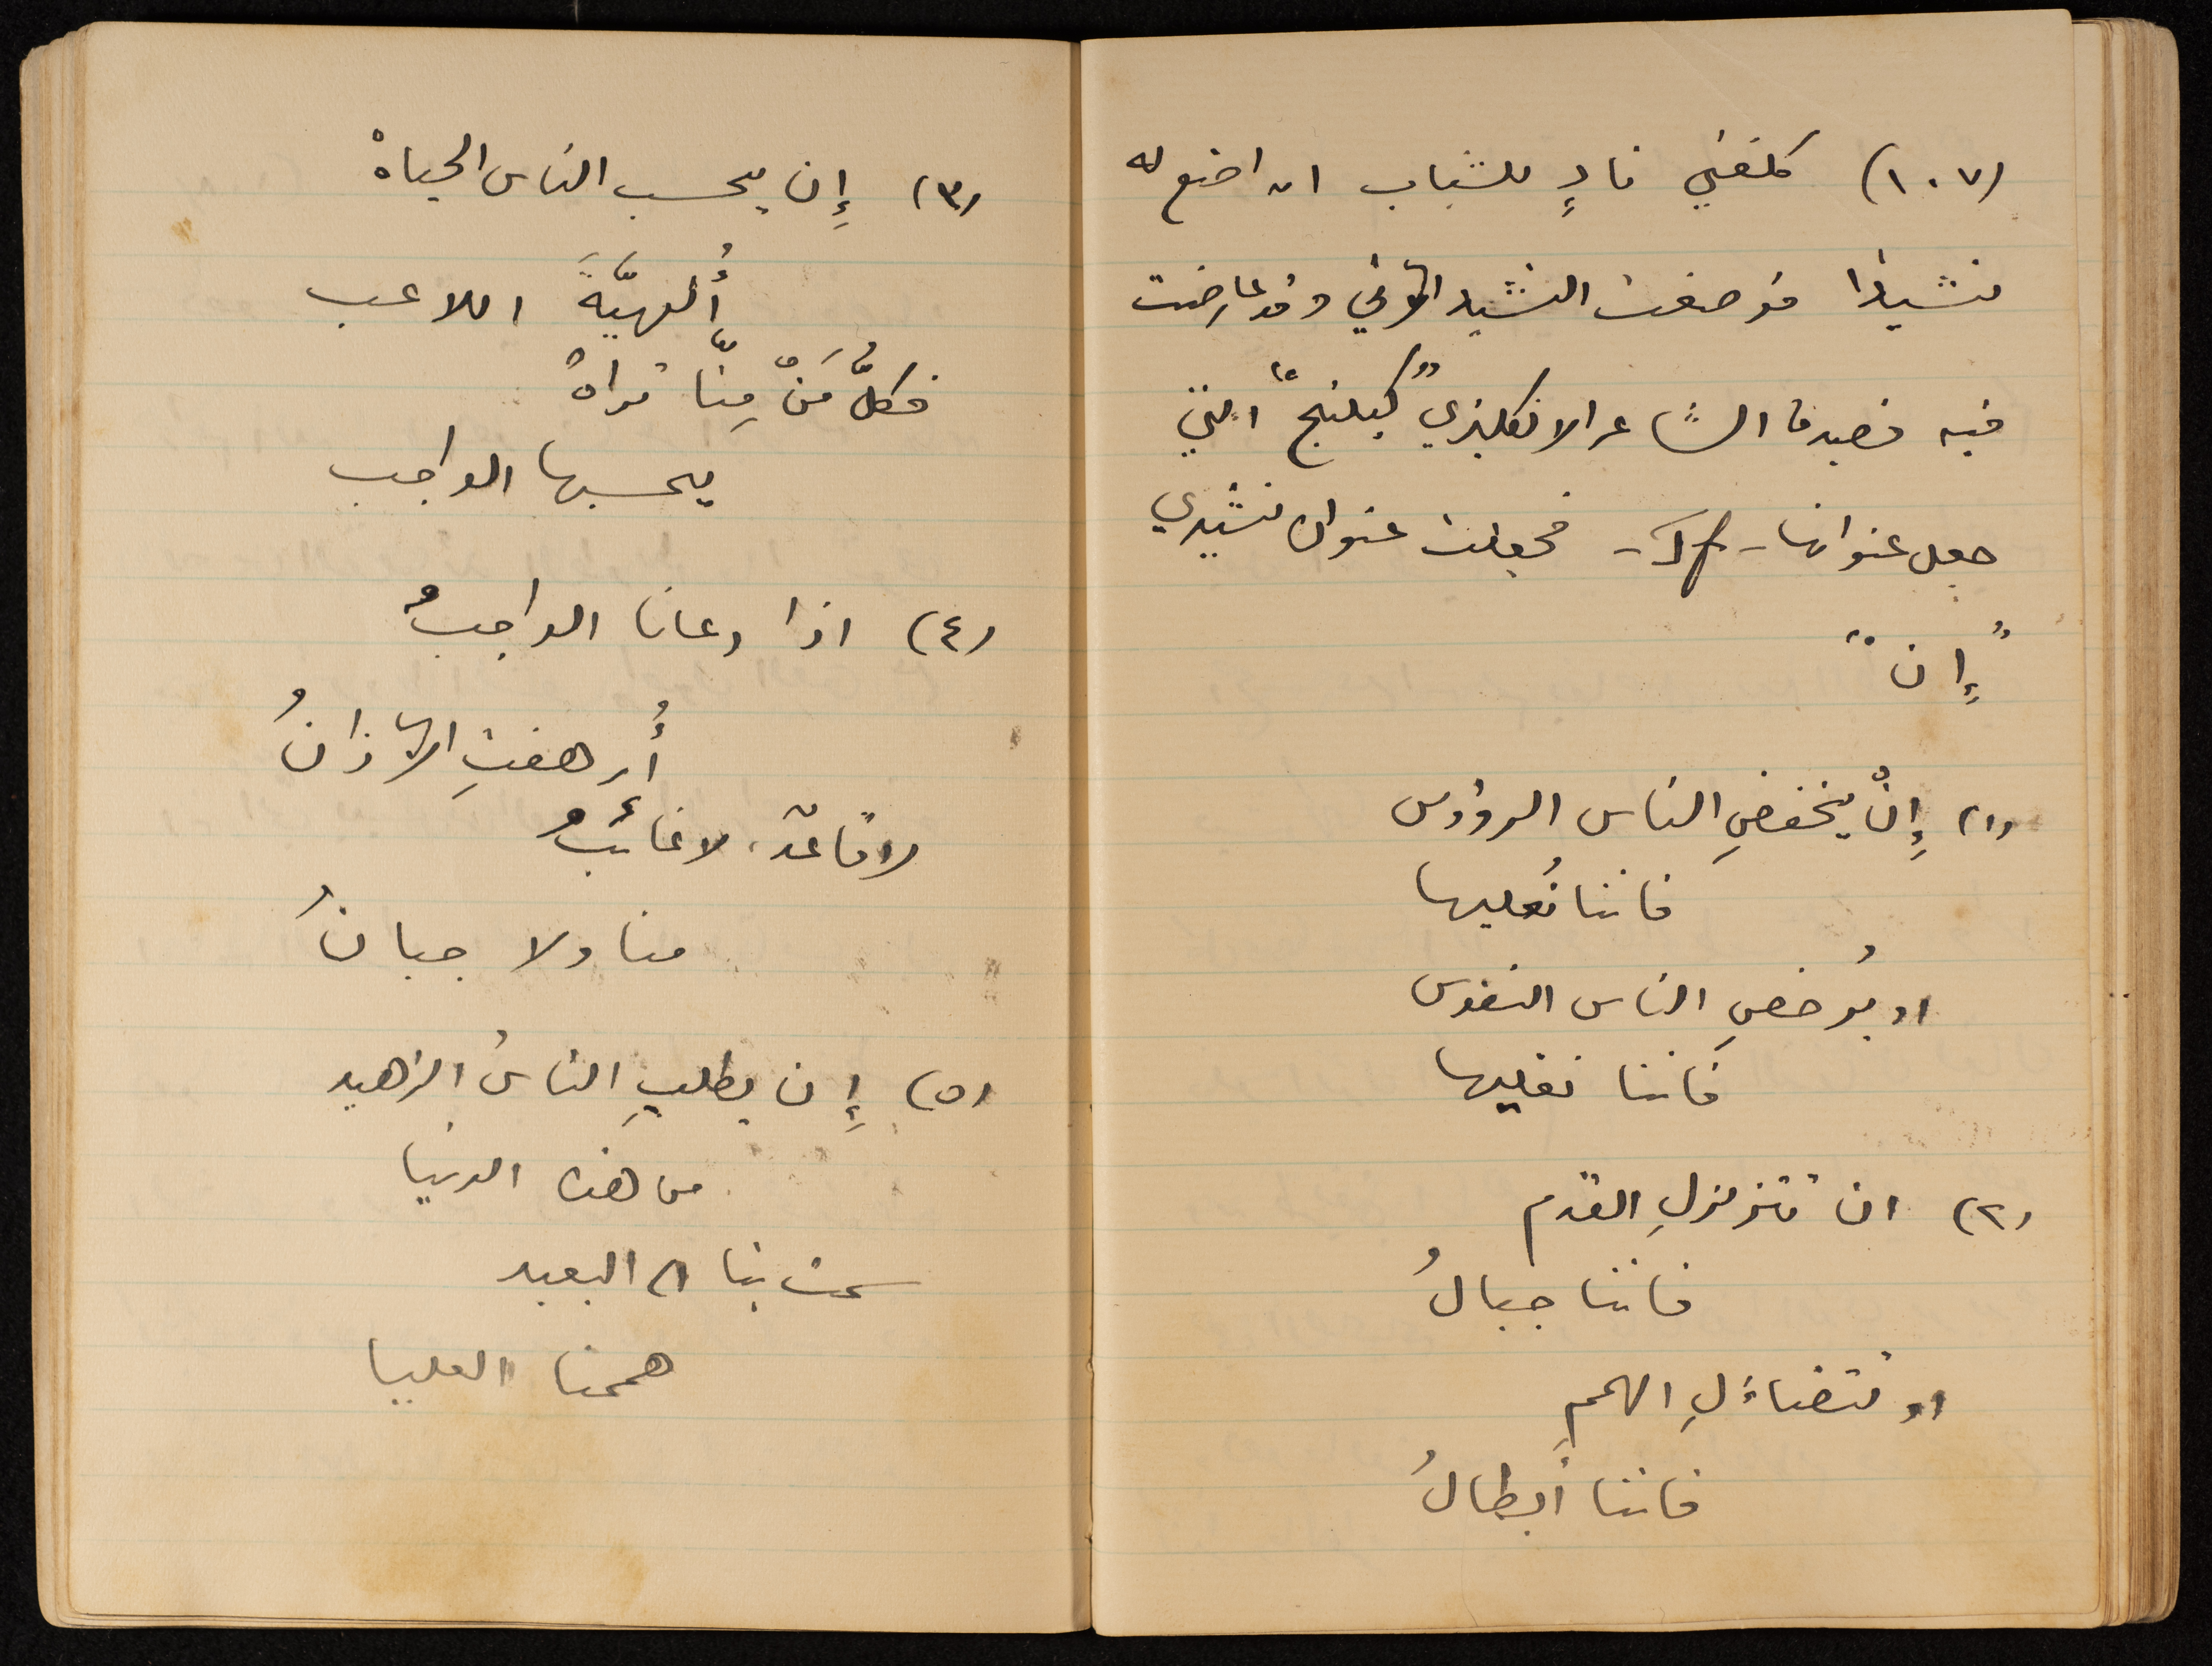 (١٠٧) كلفني نادٍ للشباب ان اضع له
نشيدًا فوضعت النشيد الآتي وقد عارضت
فيه قصيدة الشاعر الانكليزي "كبلنج" التي
جعل عنوانها - If - فجعلت عنوان نشيدي
"إِن"
(١) إِنْ يخفضِ الناس الرؤوس
فاننا نُعليها
او يُرخصِ الناس النفوس
فاننا نغليها
(٢) ان تتزلزلِ القدم
فاننا جبالُ
او تتضاءلِ الهمم
فاننا أبطالُ
(٣) إِن يحسب الناس الحياةْ
أُلهيَّةَ اللاعب
فكلُّ مَنْ مِنّا تراهْ
يحسبها الواجب
(٤) اذا دعانا الواجبُ
أُرهفتِ الآذانُ
لا قاعدٌ، لا غائبُ
منا ولا جبانُ
(٥) إِن يطلبِ الناسُ الزهيد
من هذه الدنيا
سمت بنا الى البعيد
هممنا العليا